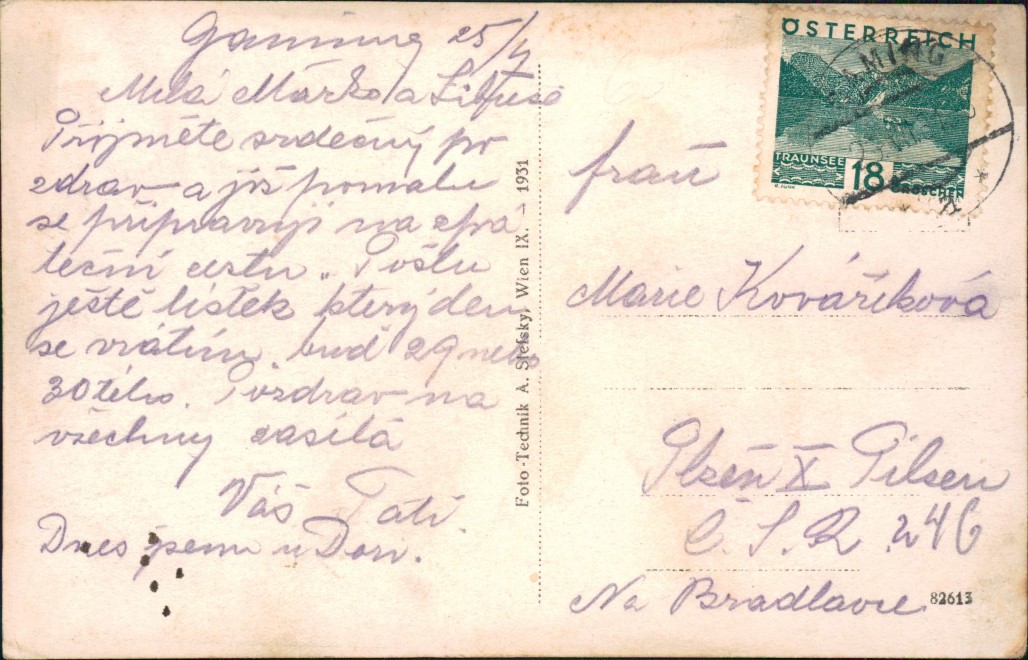 Gaming 25/
Milá Mářko a Libuše
Přijměte srdečný po
zdrav a již pomalu
se připravuji na zpá
teční cestu. Pošlu
ještě lístek který den
se vrátím, buď 29 nebo
30tého. Pozdrav na
všechny zasílá
Váš Táti.
Dnes jsem u
Foto-Technik A. Stefsky, Wien IX. – 1931
ÖSTERREICH
TRAUNSEE
18 GROSCHEN
GAMING
frau
Marie Kováříková
Plzeň X Pilsen
Č. S. R. 246
Na Bradlavce
82613